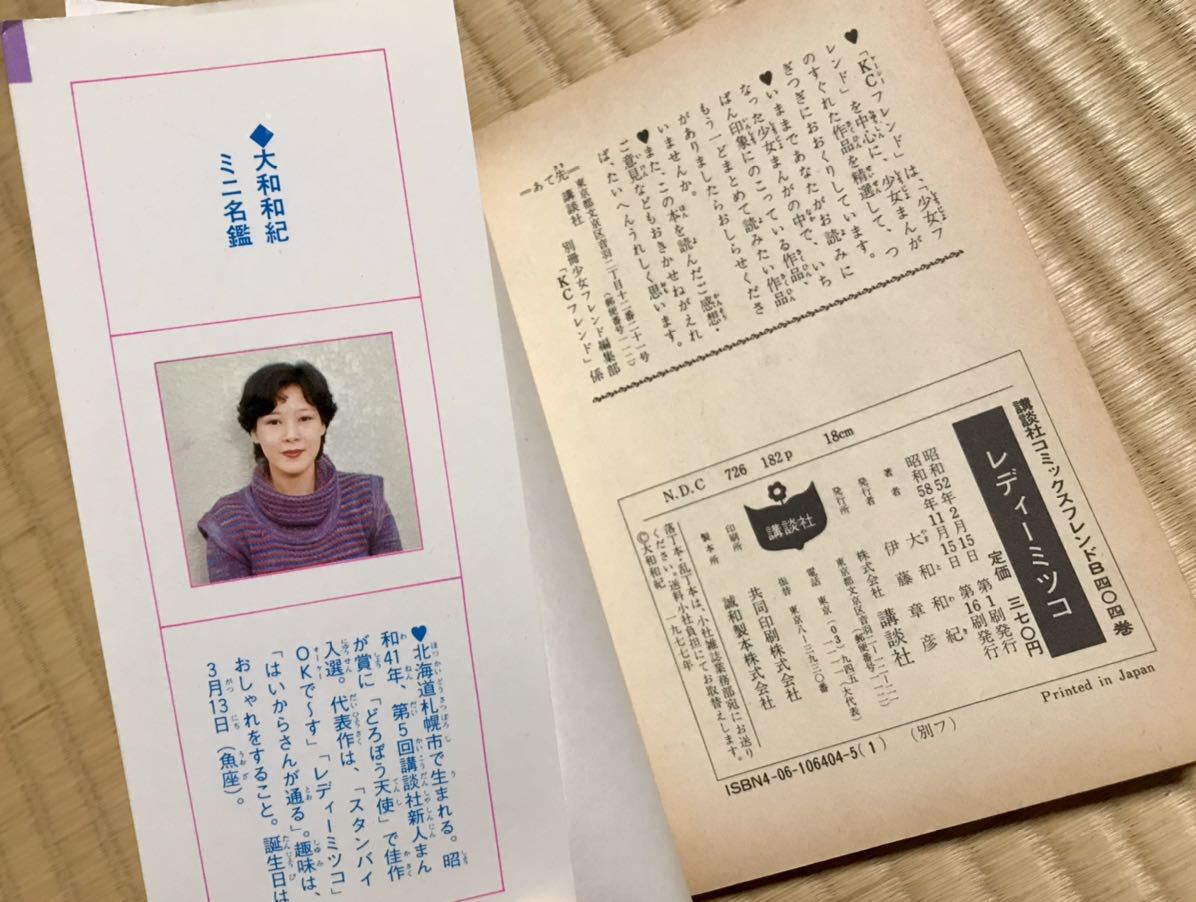 ◆大和和紀
ミニ名鑑
♥北海道札幌市で生まれる。昭
和41年、第5回講談社新人まん
が賞に「どろぼう天使」で佳作
入選。代表作は、「スタンバイ
OKで〜す」「レディーミツコ」
「はいからさんが通る」。趣味は、
おしゃれをすること。誕生日は
3月13日（魚座）。
♥「KCフレンド」は、「少女フ
レンド」を中心に、少女まんが
のすぐれた作品を精選して、つ
ぎつぎにおおくりしています。
♥いままであなたがお読みに
なった少女まんがの中で、いち
ばん印象にのこっている作品、
もう一どまとめて読みたい作品
がありましたらおしらせくださ
いませんか。
♥また、この本を読んだご感想・
ご意見などもおきかせねがえれ
ば、たいへんうれしく思います。
―あて先―
東京都文京区音羽二丁目十二番二十一号
（郵便番号一一二）
講談社 別冊少女フレンド編集部
「KCフレンド」係
講談社コミックスフレンドB四〇四巻
レディーミツコ
定価 三七〇円
昭和52年2月15日 第1刷発行
昭和58年11月15日 第16刷発行
著者 大和和紀
発行者 伊藤章彦
発行所 株式会社 講談社
東京都文京区音羽二-一二-二一
（郵便番号一一二）
電話 東京（03）九四五-一一一一（大代表）
振替 東京八-三九三〇番
講談社
印刷所 共同印刷株式会社
製本所 誠和製本株式会社
落丁本・乱丁本は、小社雑誌業務部宛にお送り
ください。送料小社負担にてお取替えします。
©大和和紀 一九七七年
N.D.C 726 182p 18cm
Printed in Japan
ISBN4-06-106404-5(1) (別フ)